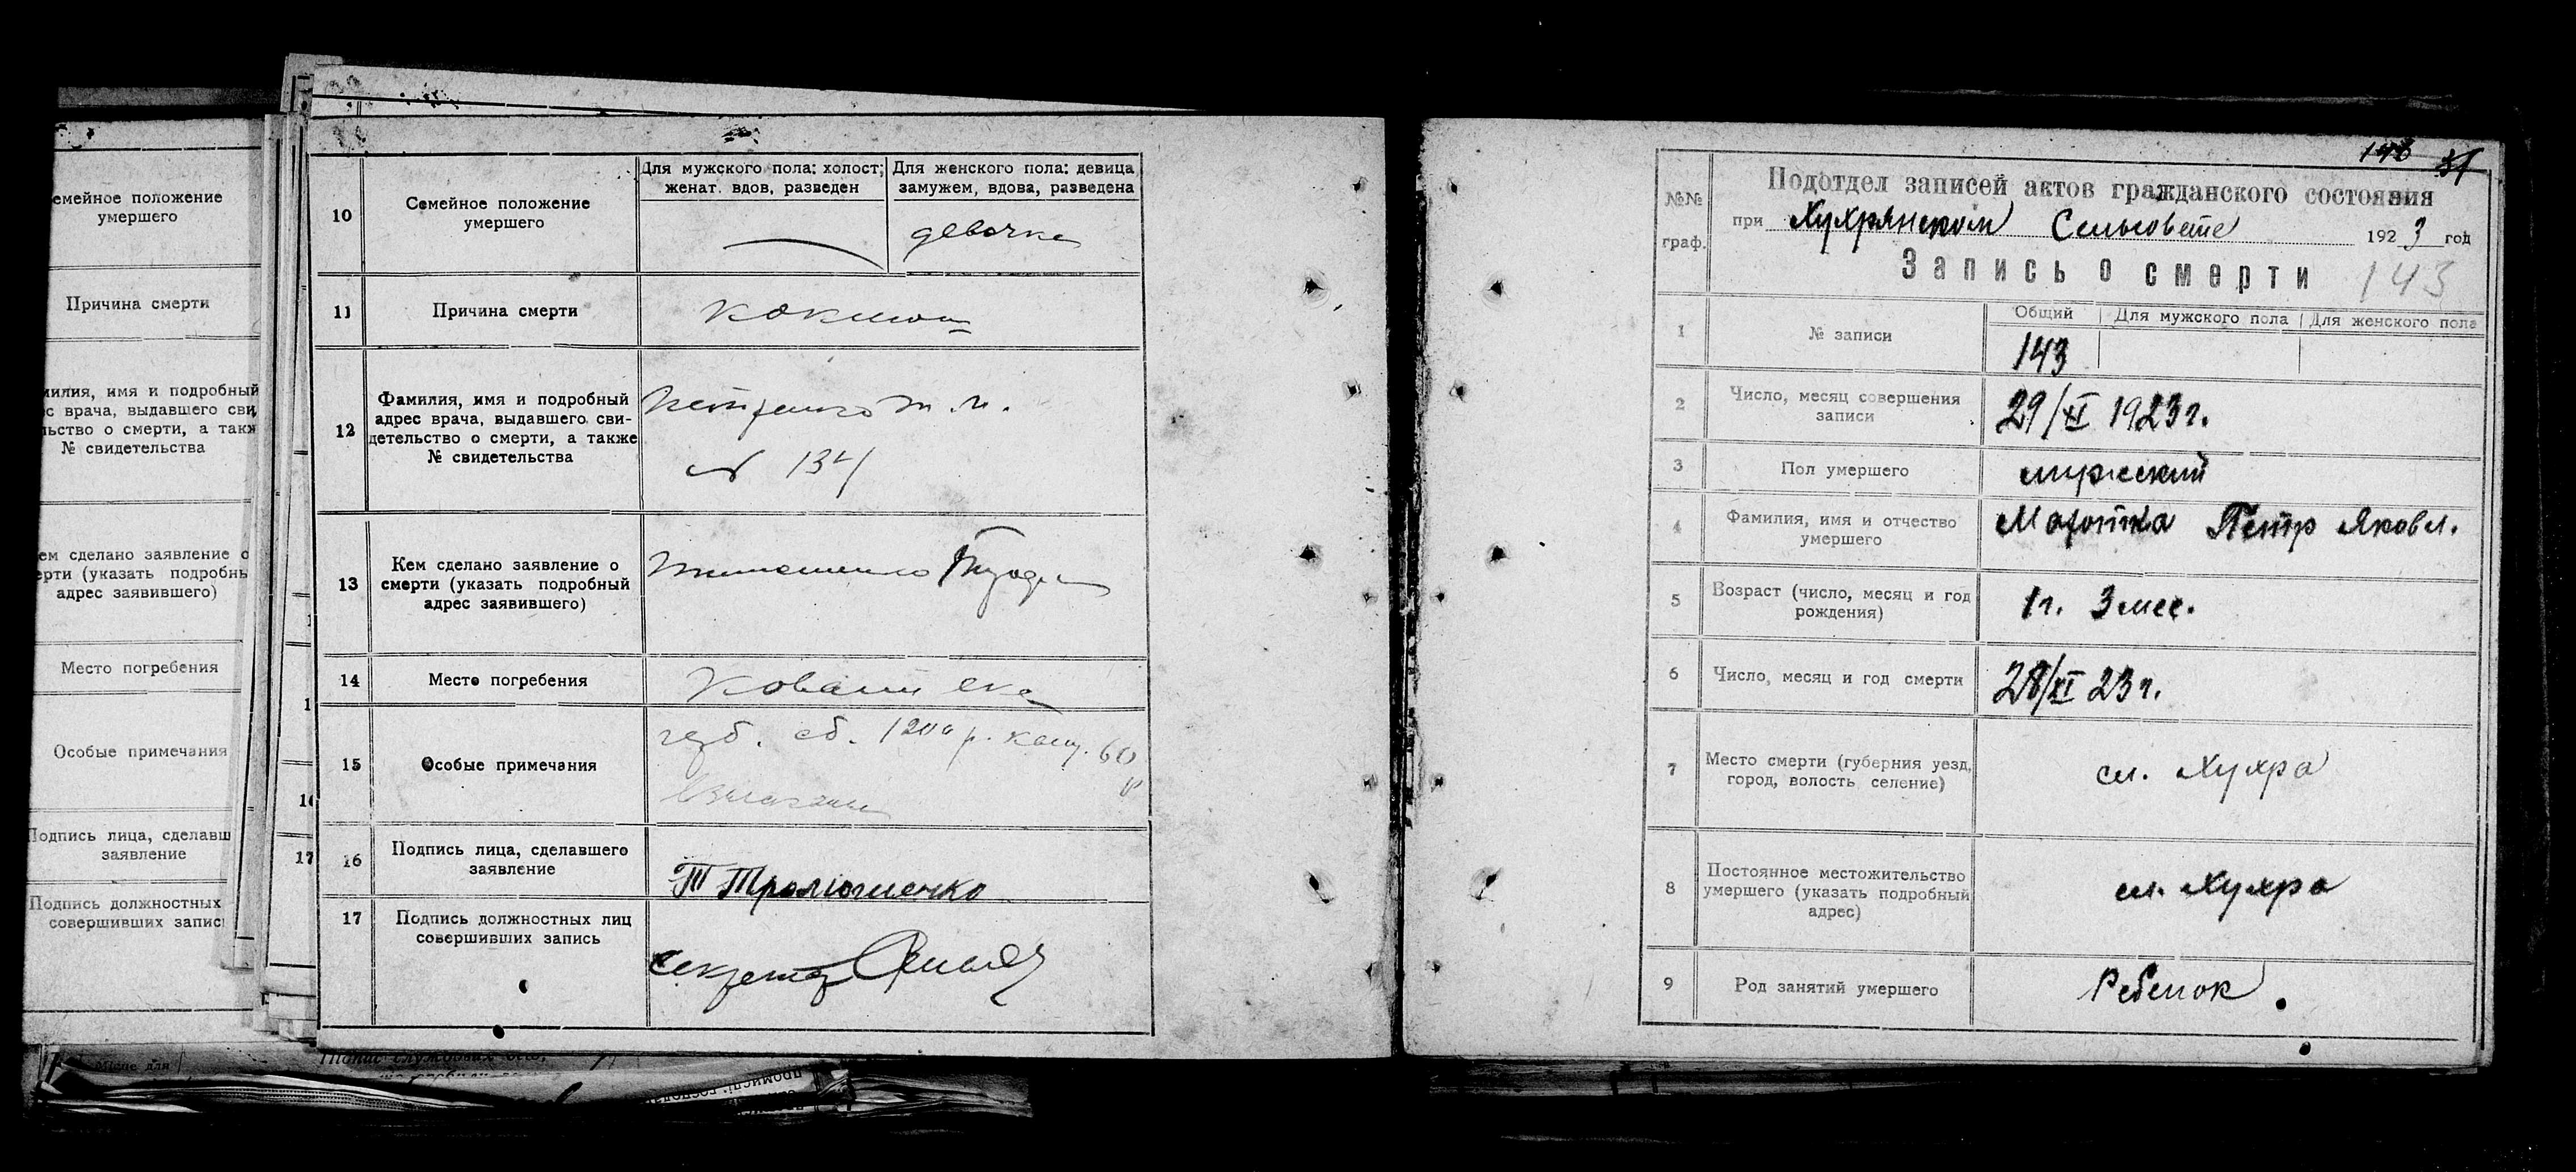 емейное положение
умершего
Причина смерти
милия, имя и подробный
с врача, выдавшего сви
льство о смерти, а такж
№ свидетельства
ем сделано заявление о
ерти (указать подробны
адрес заявившего)
Место погребения
Особые примечания
Подпись лица, сделавш
заявление
Подпись должностных
совершивших запис
17
10
Семейное положение
умершего
Для мужского пола: холост;
женат. вдов, разведен
Для женского пола: девица,
замужем, вдова, разведена
девочка
11
Причина смерти
коклюш
12
Фамилия, имя и подробный
адрес врача, выдавшего сви-
детельство о смерти, а также
№ свидетельства
№ 134
13
Кем сделано заявление о
смерти (указать подробный
адрес заявившего)
14
Место погребения
15
Особые примечания
сб. 1200 р. канц. 60
16
Подпись лица, сделавшего
заявление
17
Подпись должностных лиц
совершивших запись
секретар
143
№№
граф.
Подотдел записей актов гражданского состояния
при Хухрянском Сельсовете 1923 год
Запись о смерти 143
1
№ записи
Общий
Для мужского пола
Для женского пола
143
2
Число, месяц совершения
записи
29/XI 1923 г.
3
Пол умершего
мужеский
4
Фамилия, имя и отчество
умершего
Петр Яковл.
5
Возраст (число, месяц и год
рождения)
1 г. 3 мес.
6
Число, месяц и год смерти
28/XI 23 г.
7
Место смерти (губерния уезд,
город, волость селение)
сл. Хухра
8
Постоянное местожительство
умершего (указать подробный
адрес)
сл. Хухра
9
Род занятий умершего
Ребенок